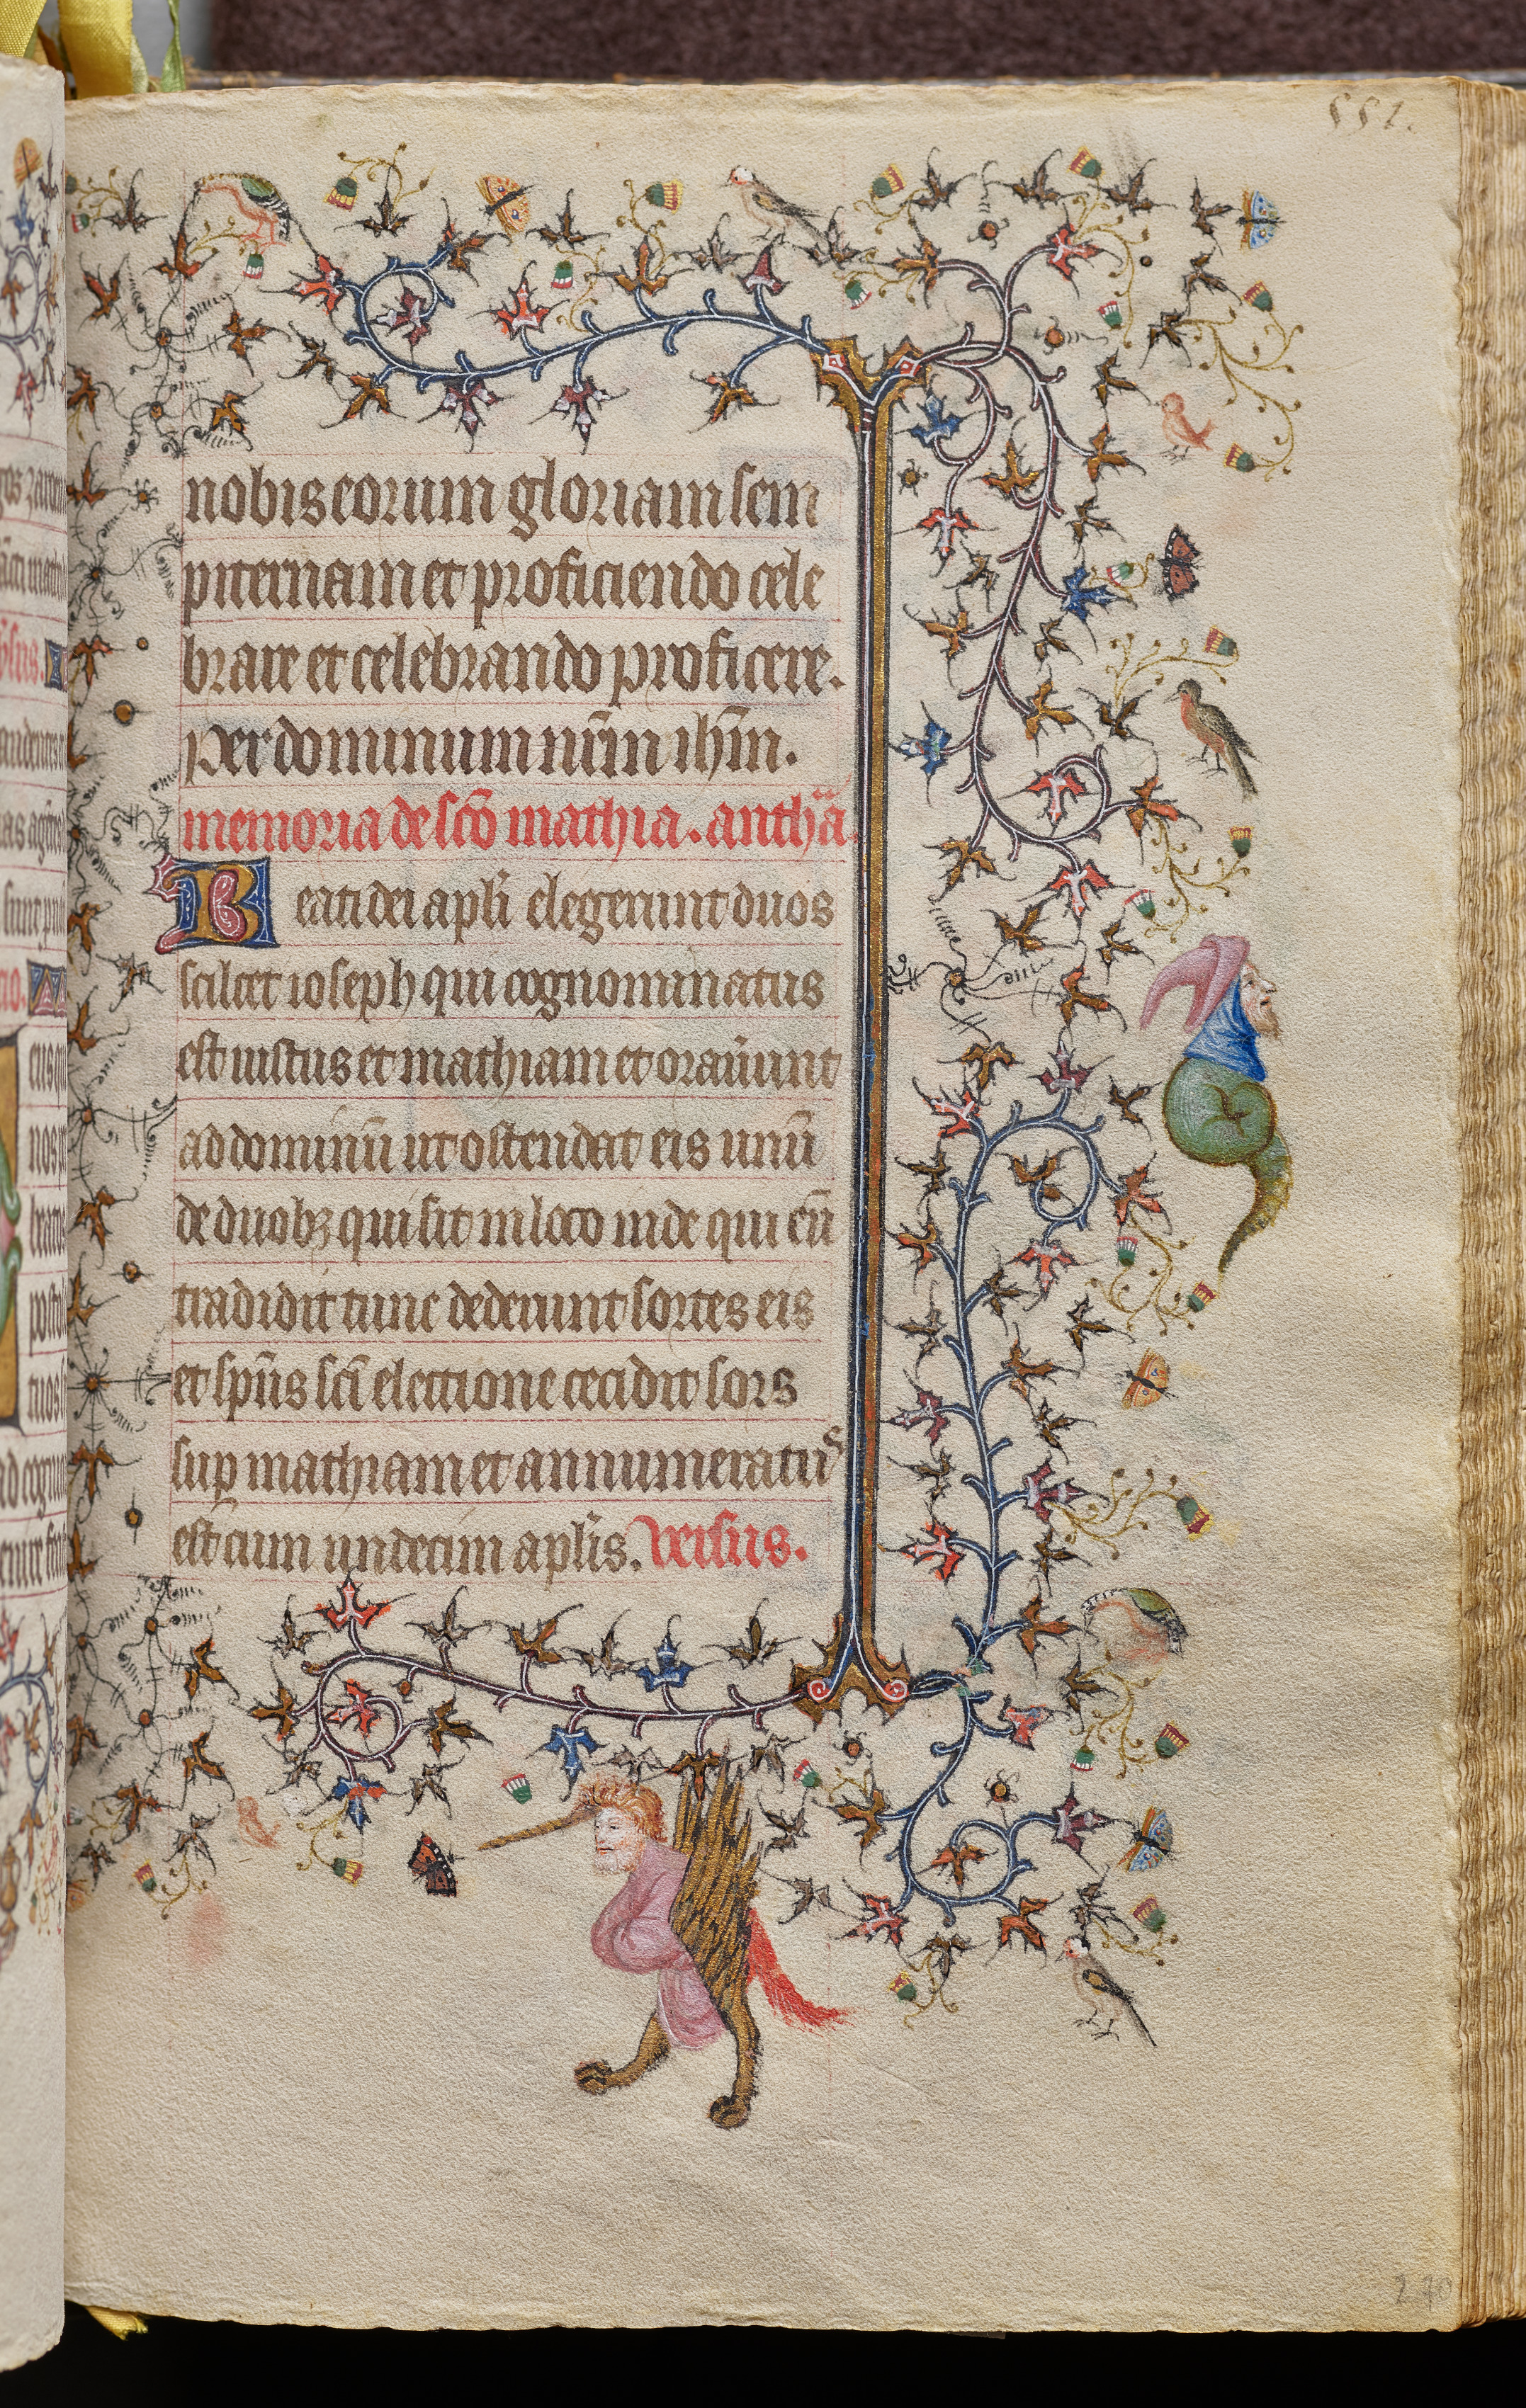 551.
nobis eorum gloriam sem
piternam et proficiendo cele
brare et celebrando proficere.
Per dominum nr̄m ihm̄.
memoria de sc̄o mathia. anthā.
Beati dei apl̄i elegerunt duos
scilcet ioseph qui cognominatus
est iustus et mathiam et orauūnt
ad dominū ut ostendat eis unū
de duobꝫ qui sit in loco inde qui eū
tradidit tunc dederunt sortes eis
et sp̄us sc̄i electione cecidit sors
suꝑ mathiam et annumeratus
est cum undecim apl̄is. versus.
270